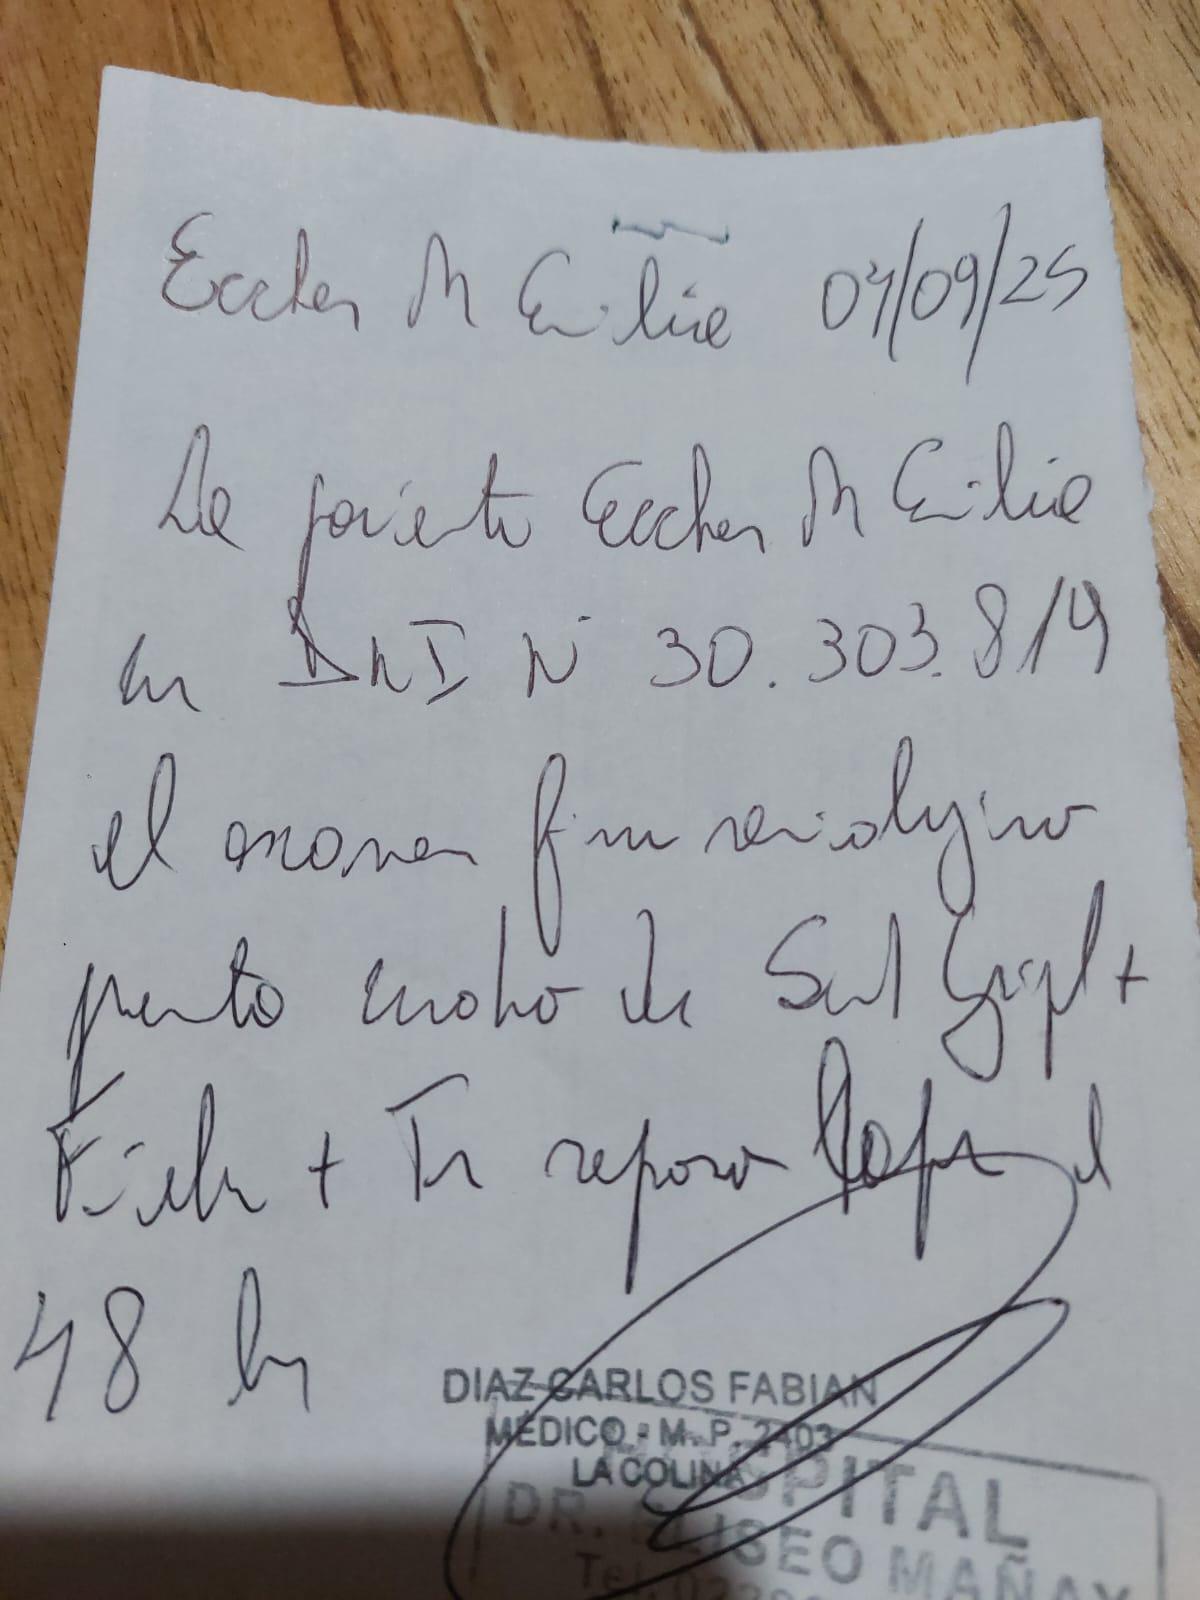 Eccher M Emilia 04/09/25
La paciente Eccher M Emilia
con DNI N° 30.303.819
el examen fin semiologico
presenta cuadro de Sind Gripal +
Fiebre + Tos reposo laboral
48 hs
DIAZ CARLOS FABIAN
MEDICO - M. P. 2403
LA COLINA
HOSPITAL
DR. ELISEO MAÑAY
Tel.